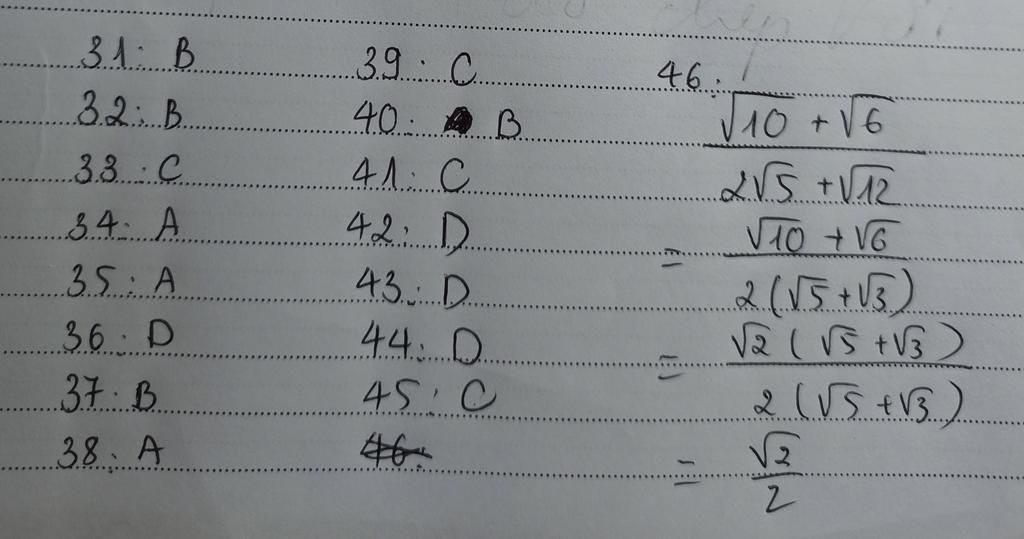 31: B
32: B
33: C
34: A
35: A
36: D
37: B
38: A
39: C
40: B
41: C
42: D
43: D
44: D
45: C
46:
46:
√10 + √6
2√5 + √12
= √10 + √6
2(√5 + √3)
= √2 (√5 + √3)
2 (√5 + √3)
= √2
2